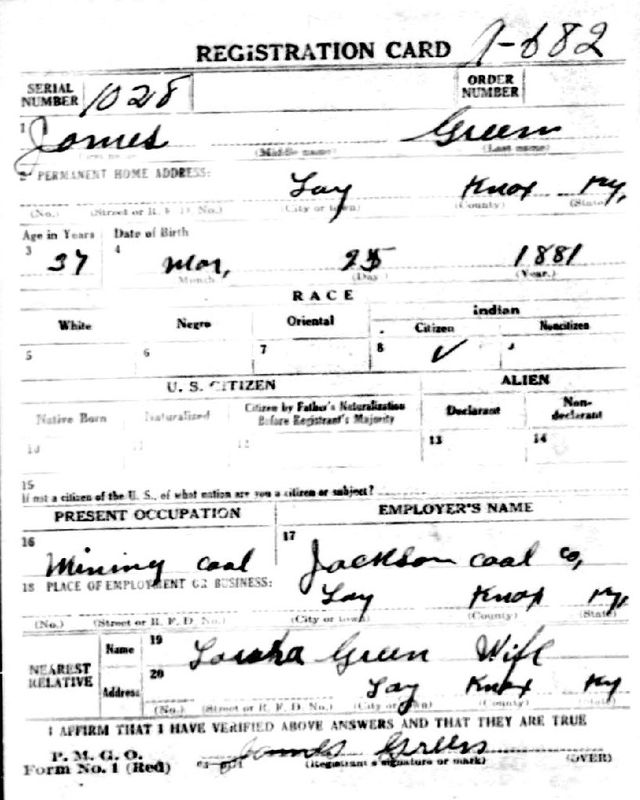 REGISTRATION CARD
SERIAL NUMBER 1028 ORDER NUMBER
1 James Green
(Middle name) (Last name)
2 PERMANENT HOME ADDRESS:
Lay Knox Ky,
(No.) (Street or R. F. D. No.) (City or town) (County) (State)
Age in Years Date of Birth
3 37 4 Mar, 25 1881
Month (Day) (Year.)
RACE
White Negro Oriental Indian
Citizen Noncitizen
5 6 7 8 ✓
U. S. CITIZEN ALIEN
Native Born Naturalized Citizen by Father's Naturalization Before Registrant's Majority Declarant Non-declarant
10 11 12 13 14
15
If not a citizen of the U. S., of what nation are you a citizen or subject?
PRESENT OCCUPATION EMPLOYER'S NAME
16 Mining coal 17 Jackson coal co,
18 PLACE OF EMPLOYMENT OR BUSINESS:
Lay Knox Ky,
(No.) (Street or R. F. D. No.) (City or town) (County) (State)
NEAREST RELATIVE Name 19 Green Wife
Address 20 Lay Knox Ky
(No.) (Street or R. F. D. No.) (City or town) (County) (State)
I AFFIRM THAT I HAVE VERIFIED ABOVE ANSWERS AND THAT THEY ARE TRUE
P. M. G. O.
Form No. 1 (Red) James Green
(Registrant's signature or mark) (OVER)